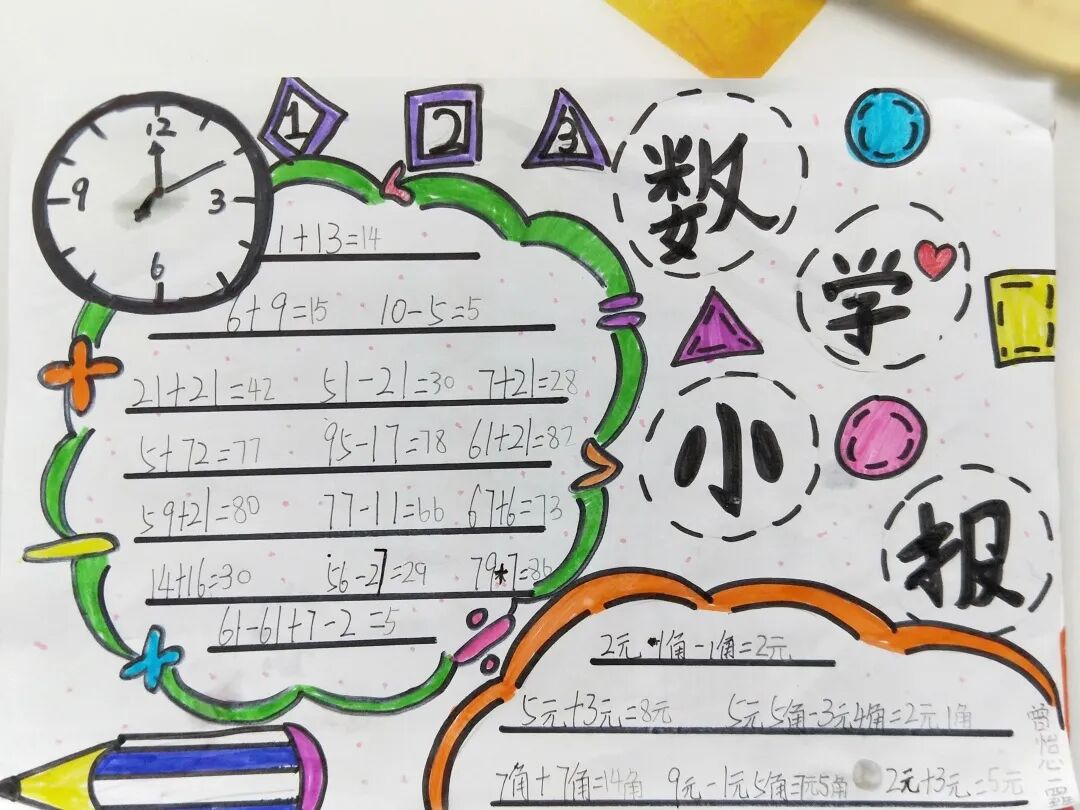 1 2 3
数学小报
12
9 3
6
1+13=14
6+9=15 10-5=5
21+21=42 51-21=30 7+21=28
5+72=77 95-17=78 61+21=82
59+21=80 77-11=66 67+6=73
14+16=30 56-27=29 79+7=86
61-61+7-2=5
2元1角-1角=2元
5元+3元=8元 5元5角-3元4角=2元1角
7角+7角=14角 9元-1元5角=7元5角 2元+3元=5元
曾怡